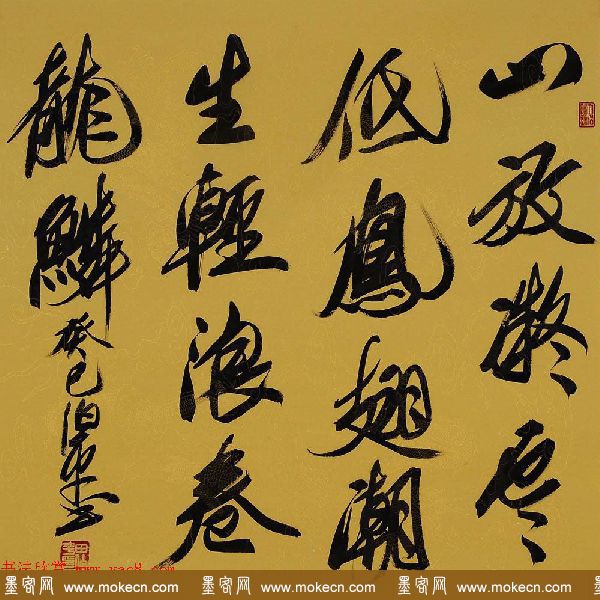 山放凝雲
低鳳翅潮
生輕浪卷
龍鱗癸巳
书法欣赏 www.yac8.com
墨客网 www.mokecn.com 墨客网 www.mokecn.com 墨客网 www.mokecn.com